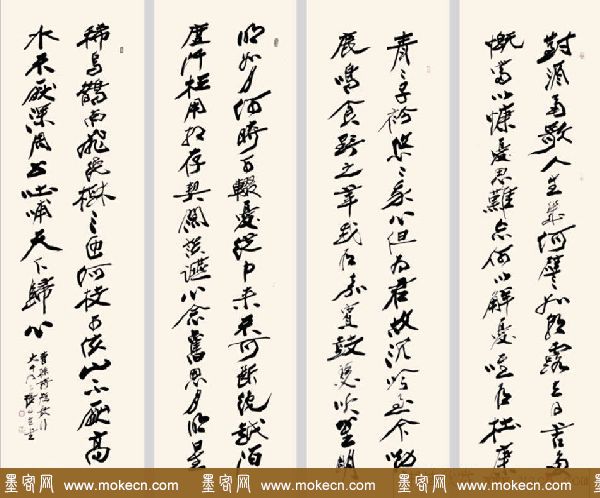 對酒當歌人生幾何譬如朝露去日苦多
慨當以慷憂思難忘何以解憂唯有杜康
青〻子衿悠〻我心但為君故沉吟至今呦〻
鹿鳴食野之苹我有嘉賓鼓瑟吹笙明
明如月何時可輟憂從中來不可斷絕越陌
度阡枉用相存契闊談讌心念舊恩月明星
稀烏鵲南飛繞樹三匝何枝可依山不厭高
水不厭深周公吐哺天下歸心
曹操詩短歌行
墨客网 www.mokecn.com 墨客网 www.mokecn.com 墨客网 www.mokecn.com